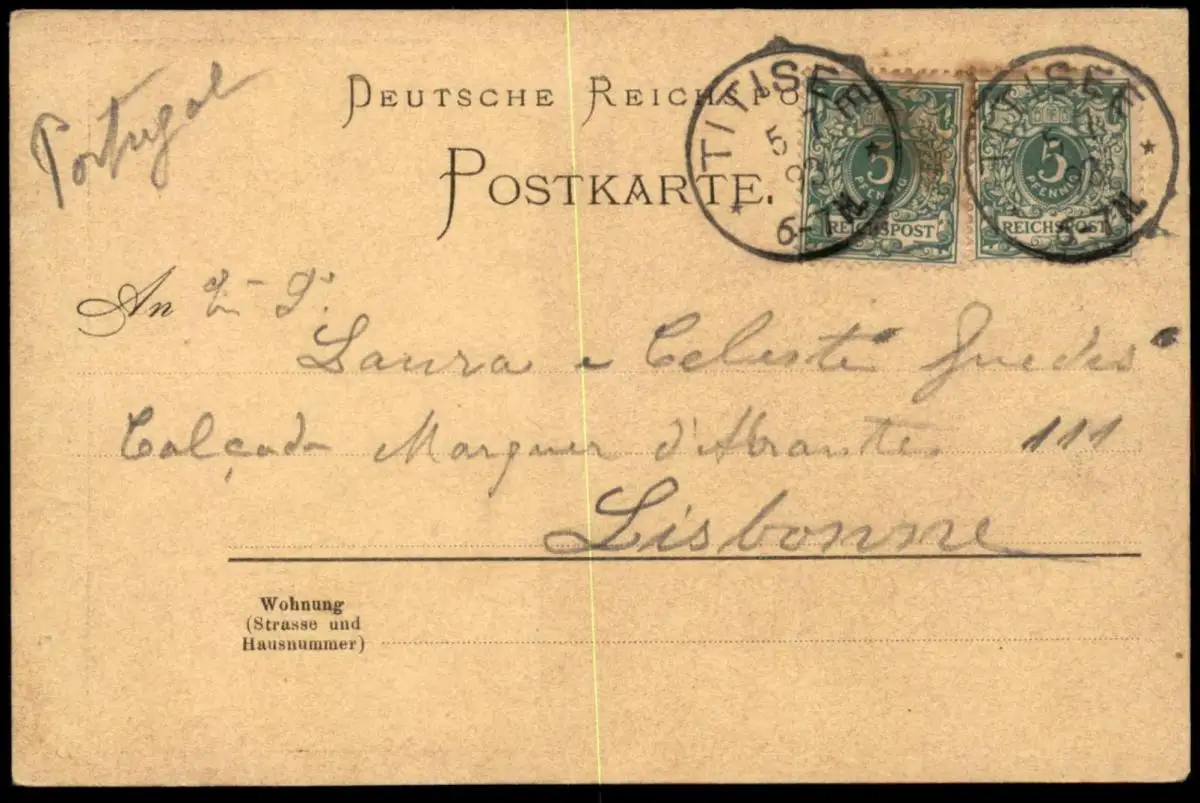 Portugal
DEUTSCHE REICHSPO
POSTKARTE.
TITISEE
5 7
93
6-7N.
5
PFENNIG
REICHSPOST
TITISEE
5 7
93
6-7N.
5
PFENNIG
REICHSPOST
An
Laura e Celeste Guedes
Calçada Marquez d'Abrantes 111
Lisbonne
Wohnung
(Strasse und
Hausnummer)